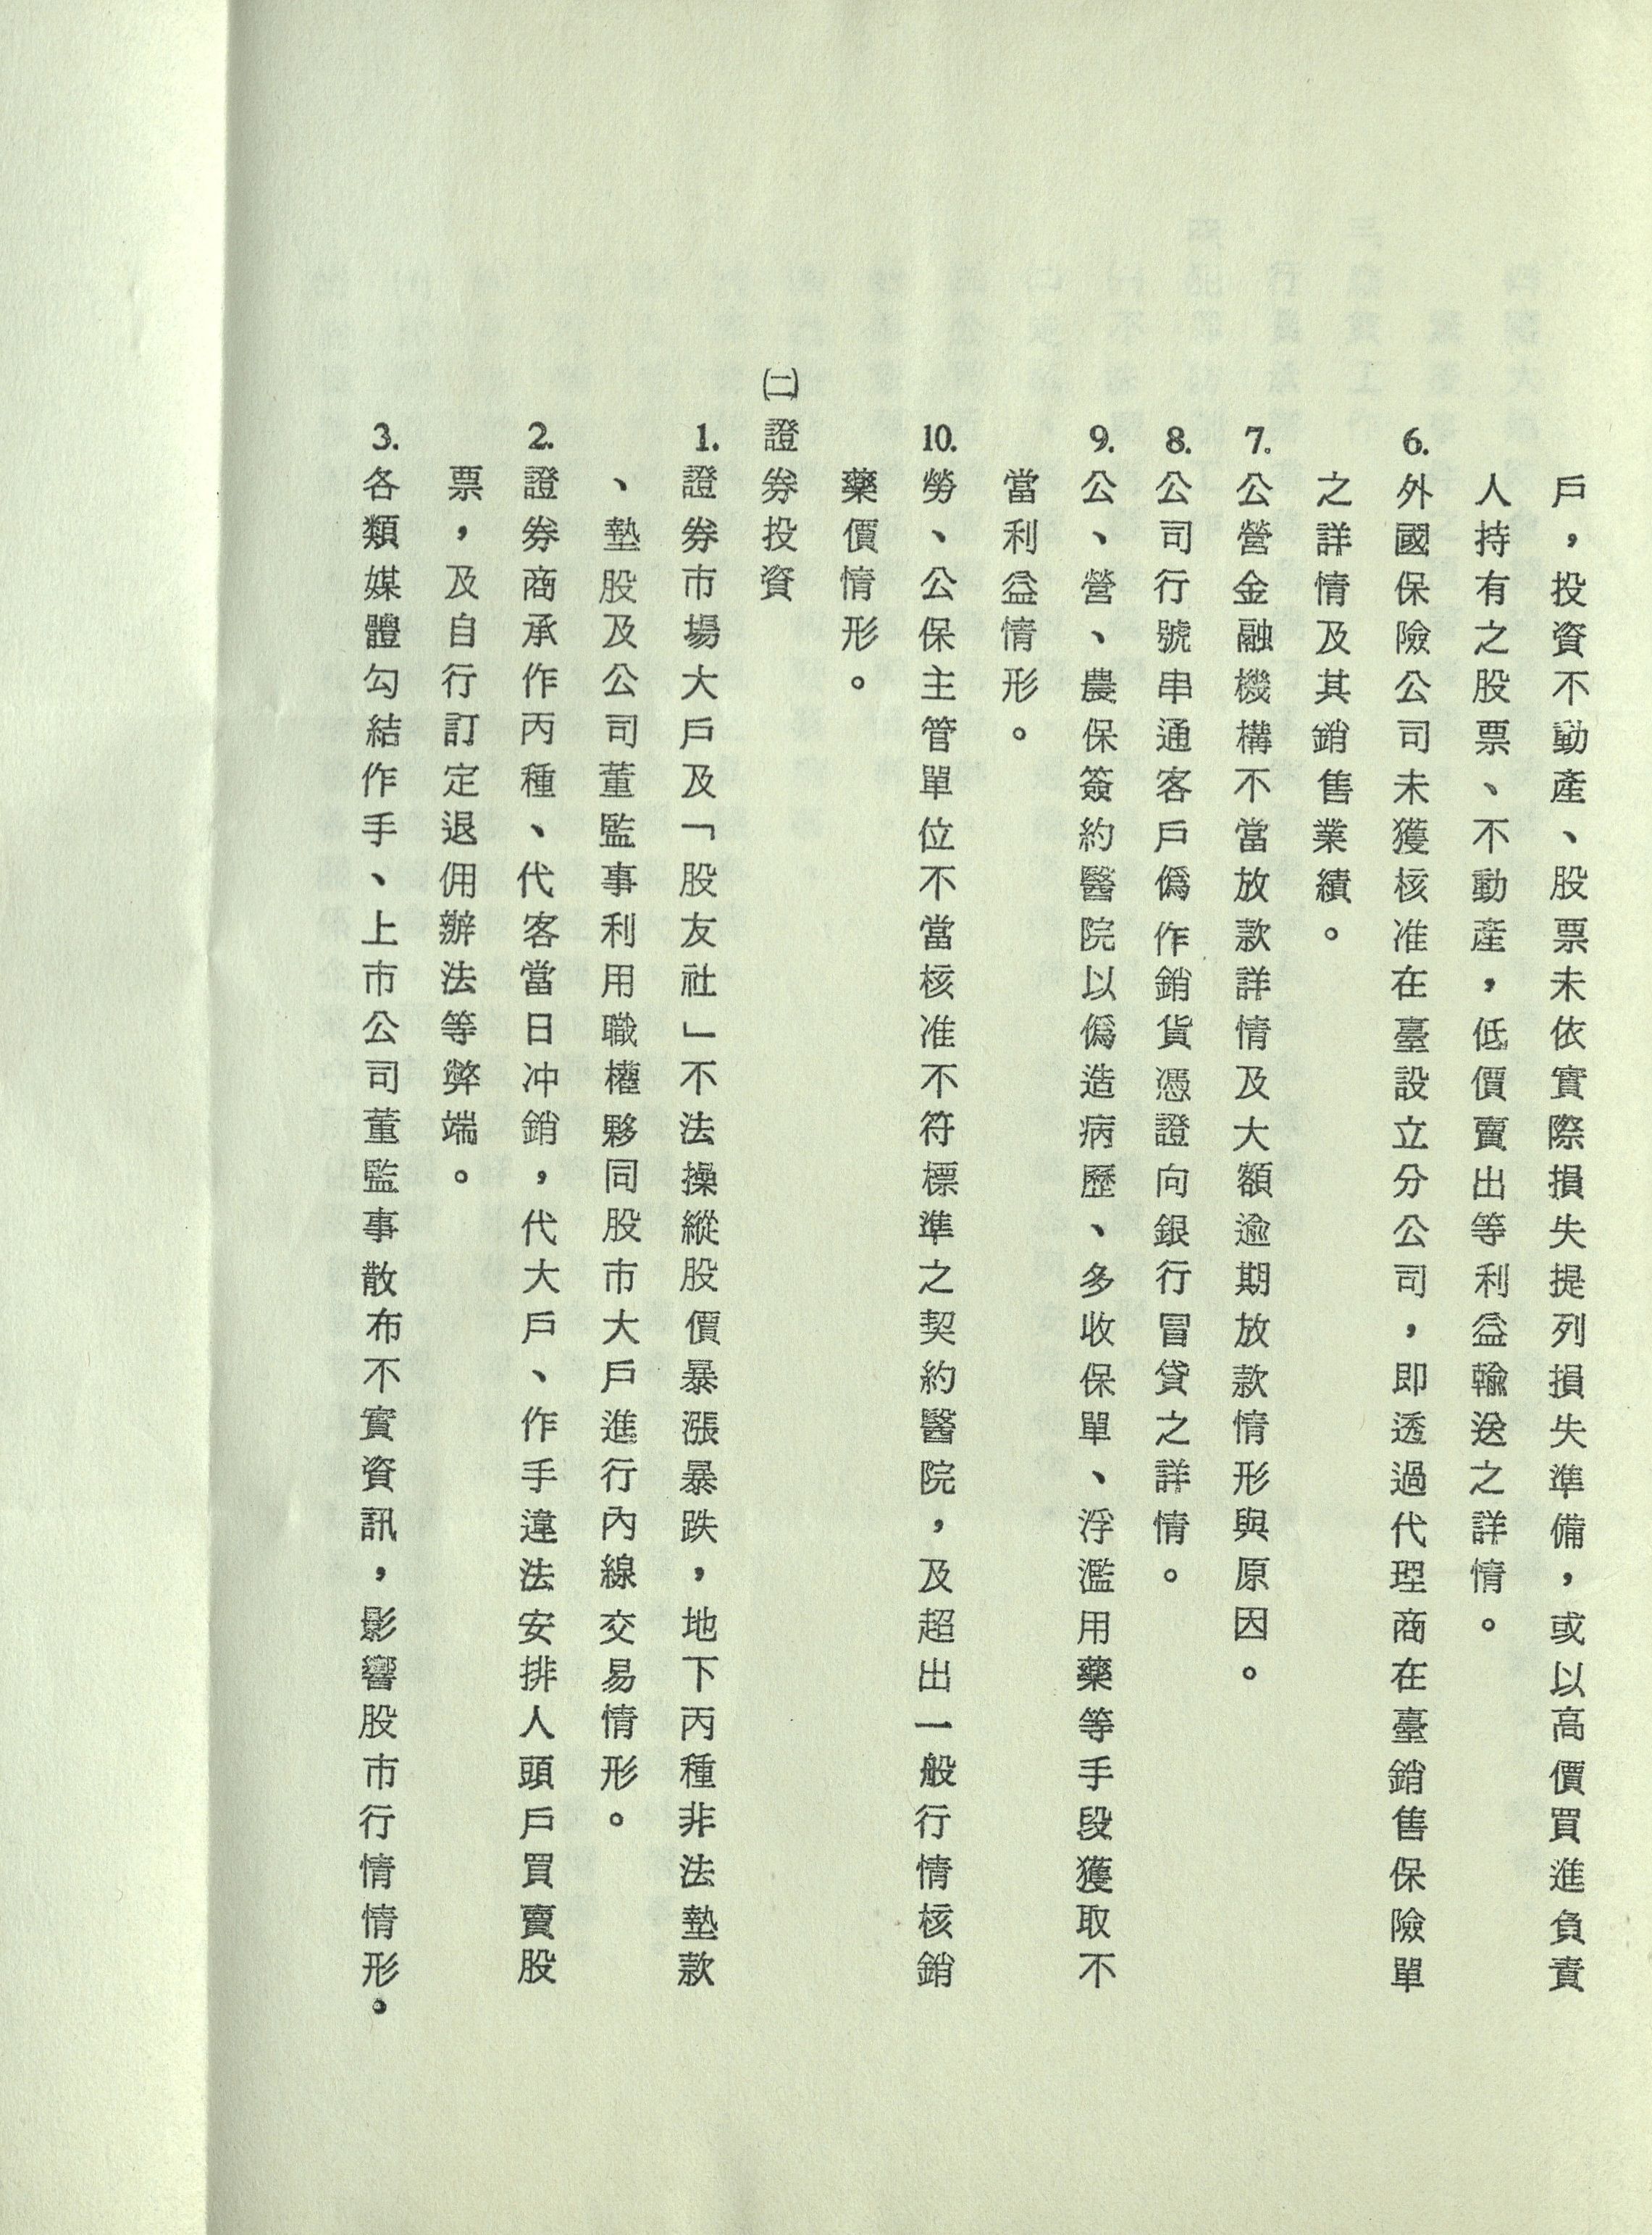 戶，投資不動產、股票未依實際損失提列損失準備，或以高價買進負責
人持有之股票、不動產，低價賣出等利益輸送之詳情。
6.外國保險公司未獲核准在臺設立分公司，即透過代理商在臺銷售保險單
之詳情及其銷售業績。
7.公營金融機構不當放款詳情及大額逾期放款情形與原因。
8.公司行號串通客戶僞作銷貨憑證向銀行冒貸之詳情。
9.公、營、農保簽約醫院以僞造病歷、多收保單、浮濫用藥等手段獲取不
當利益情形。
10.勞、公保主管單位不當核准不符標準之契約醫院，及超出一般行情核銷
藥價情形。
㈡證券投資
1.證券市場大戶及「股友社」不法操縱股價暴漲暴跌，地下丙種非法墊款
、墊股及公司董監事利用職權夥同股市大戶進行內線交易情形。
2.證券商承作丙種、代客當日冲銷，代大戶、作手違法安排人頭戶買賣股
票，及自行訂定退佣辦法等弊端。
3.各類媒體勾結作手、上市公司董監事散布不實資訊，影響股市行情情形。